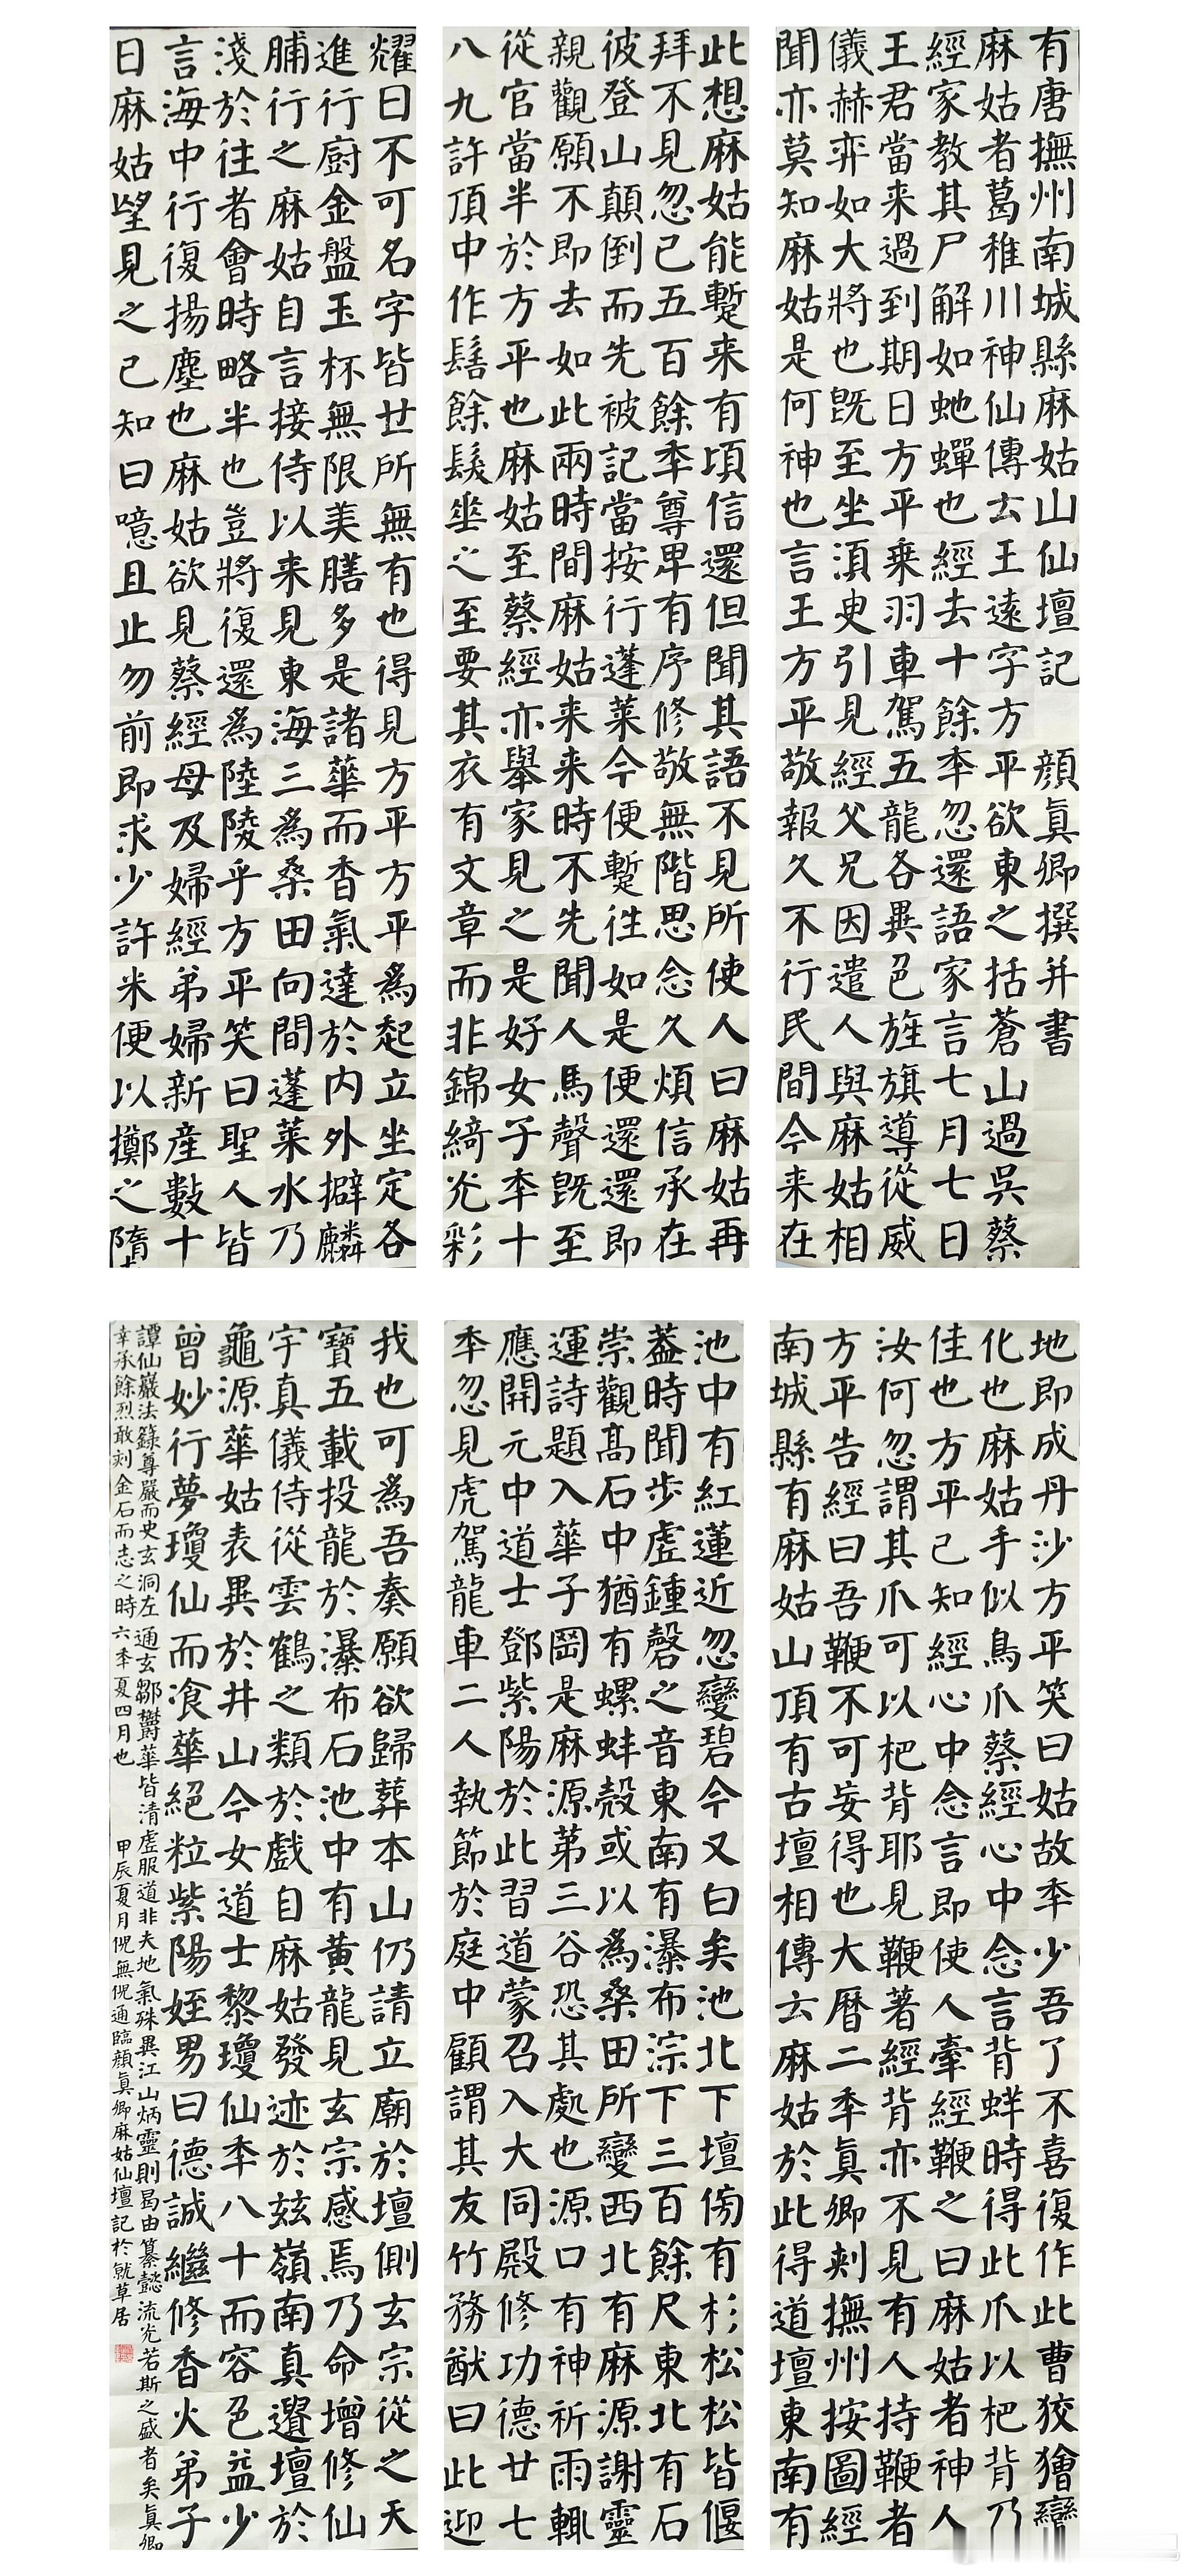 有唐撫州南城縣麻姑山仙壇記 顔真卿撰并書
麻姑者葛稚川神仙傳云王遠字方平欲東之括蒼山過吳蔡
經家教其尸解如虵蟬也經去十餘年忽還語家言七月七日
王君當来過到期日方平乗羽車駕五龍各異色旌旗導從威
儀赫弈如大將也旣至坐湏臾引見經父兄因遣人與麻姑相
聞亦莫知麻姑是何神也言王方平敬報久不行民間今来在
此想麻姑能蹔来有頃信還但聞其語不見所使人曰麻姑再
拜不見忽已五百餘年尊卑有序修敬無階思念久煩信承在
彼登山顛倒而先被記當按行蓬萊今便蹔往如是便還還即
親觀願不即去如此兩時間麻姑来来時不先聞人馬聲旣至
從官當半於方平也麻姑至蔡經亦舉家見之是好女子年十
八九許頂中作髻餘髮垂之至要其衣有文章而非錦綺光彩
耀日不可名字皆世所無有也得見方平方平為起立坐定各
進行厨金盤玉杯無限美膳多是諸華而香氣達於内外擗麟
脯行之麻姑自言接侍以来見東海三為桑田向間蓬萊水乃
淺於往者會時略半也豈將復還為陸陵乎方平笑曰聖人皆
言海中行復揚塵也麻姑欲見蔡經母及婦經弟婦新産數十
日麻姑望見之已知曰噫且止勿前即求少許米便以擲之墮
地即成丹沙方平笑曰姑故年少吾了不喜復作此曹狡獪變
化也麻姑手似鳥爪蔡經心中念言背蛘時得此爪以杷背乃
佳也方平已知經心中念言即使人牽經鞭之曰麻姑者神人
汝何忽謂其爪可以杷背耶見鞭著經背亦不見有人持鞭者
方平告經曰吾鞭不可妄得也大曆二年真卿刺撫州按圖經
南城縣有麻姑山頂有古壇相傳云麻姑於此得道壇東南有
池中有紅蓮近忽變碧今又白矣池北下壇傍有杉松松皆偃
蓋時聞步虛鍾磬之音東南有瀑布淙下三百餘尺東北有石
崇觀高石中猶有螺蚌殼或以為桑田所變西北有麻源謝靈
運詩題入華子岡是麻源第三谷恐其處也源口有神祈雨輒
應開元中道士鄧紫陽於此習道蒙召入大同殿修功德廿七
年忽見虎駕龍車二人執節於庭中顧謂其友竹務猷曰此迎
我也可為吾奏願欲歸葬本山仍請立廟於壇側玄宗從之天
寶五載投龍於瀑布石池中有黃龍見玄宗感焉乃命增修仙
宇真儀侍從雲鶴之類於戲自麻姑發迹於兹嶺南真遺壇於
龜源華姑表異於井山今女道士黎瓊仙年八十而容色益少
曾妙行夢瓊仙而飡華絕粒紫陽姪男曰德誠繼修香火弟子
譚仙巖法籙尊嚴而史玄洞左通玄鄒鬱華皆清虛服道非夫地氣殊異江山炳靈則曷由纂懿流光若斯之盛者矣真卿
幸承餘烈敢刻金石而志之時六年夏四月也 甲辰夏月倪無倪通臨顔真卿麻姑仙壇記於就草居